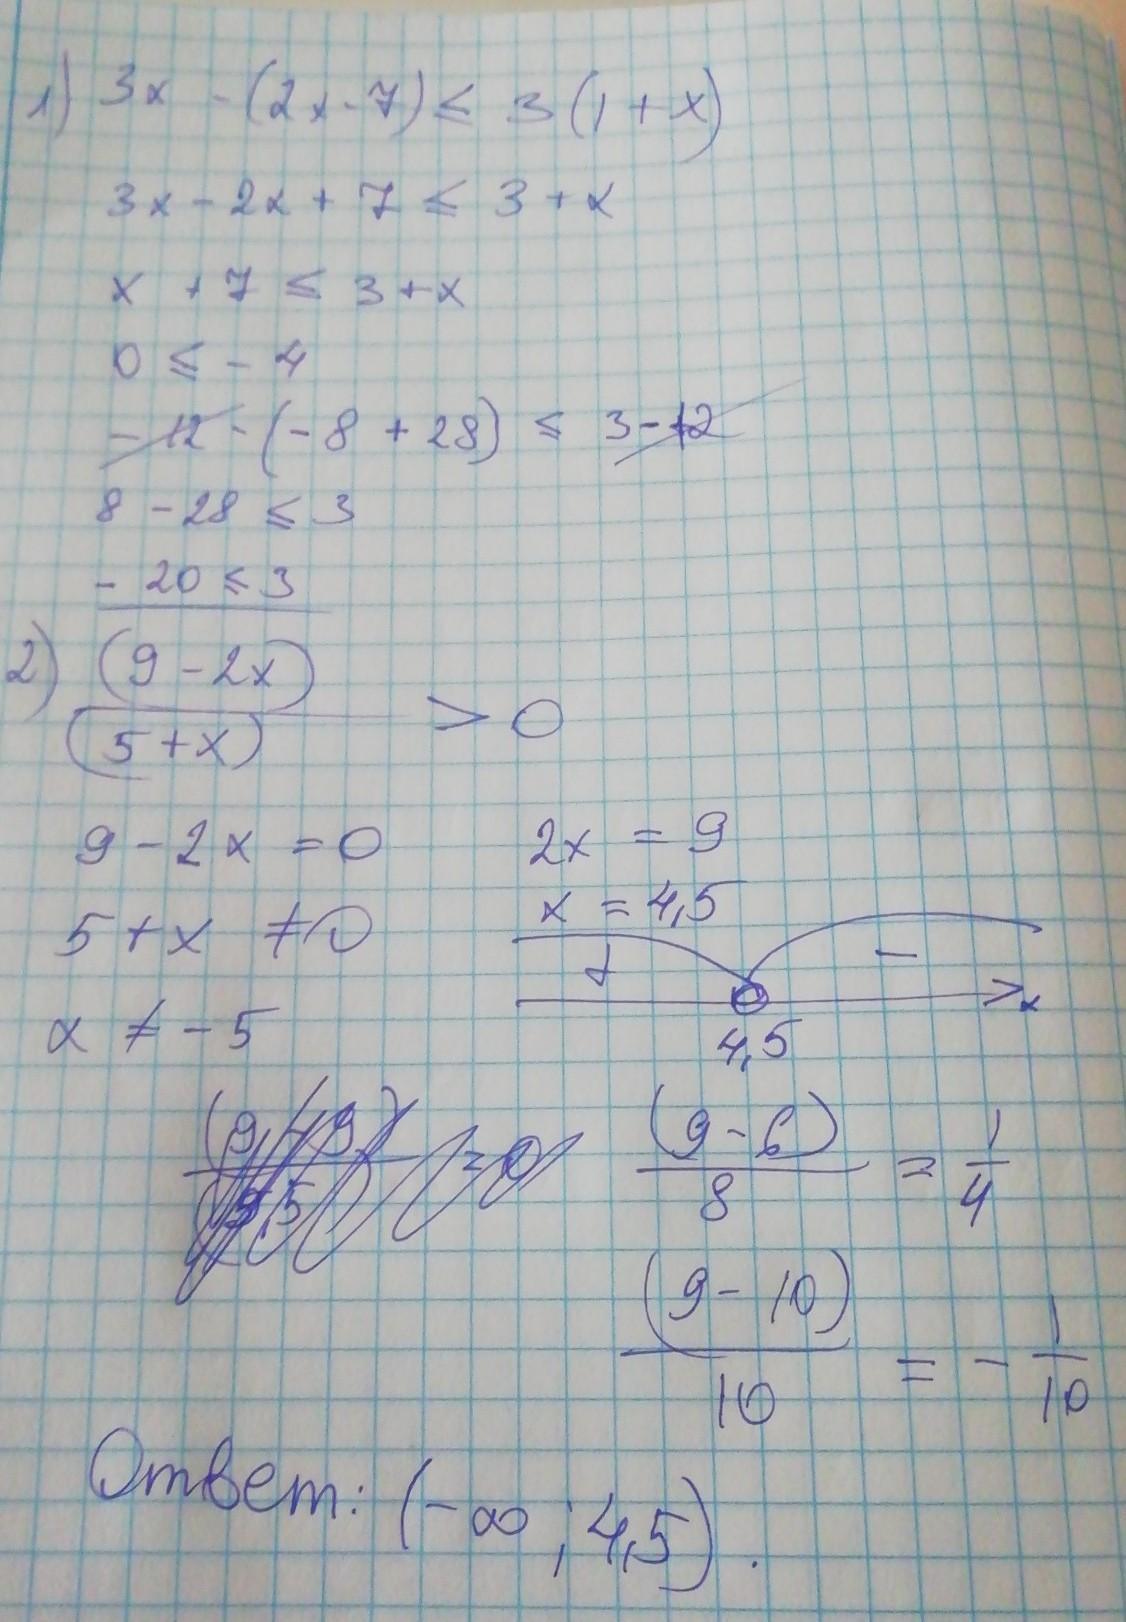 1) 3x - (2x - 7) ≤ 3(1 + x)
3x - 2x + 7 ≤ 3 + x
x + 7 ≤ 3 + x
0 ≤ - 4
- 12 - (- 8 + 28) ≤ 3 - 12
8 - 28 ≤ 3
- 20 ≤ 3
2) (9 - 2x)
(5 + x)
> 0
9 - 2x = 0
2x = 9
5 + x ≠ 0
x = 4,5
+ -
x
x ≠ - 5
4,5
(9 - 6)
8
= 1/4
(9 - 10)
10
= - 1/10
Ответ: (-∞ ; 4,5).